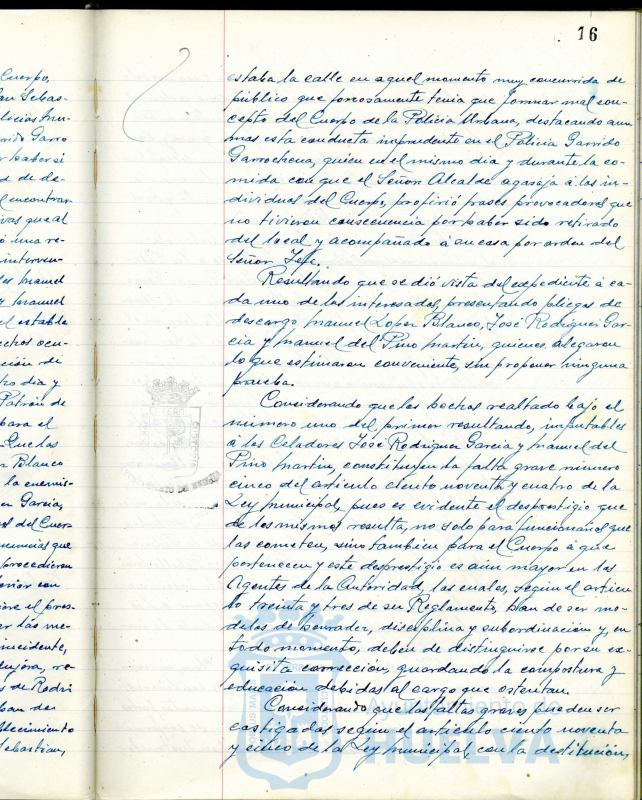 16
Cuerpo,
an Sebas-
licias Mu-
rido Garro
r haber si
d de de-
l encontrar
ivas que al
ó una re-
interven-
les Manuel
y Manuel
el estable
echos ocu-
ción de
ho día y
Patrón de
para el
Que las
r Blanco
la enemis-
en Garcia,
del Cuer-
nuncias que
procedieron
erior con
ere el pres-
ar las me-
incidente,
re-
s de Rodri
ban de
blecimiento
Sebastian,
estaba la calle en aquel momento muy concurrida de
público que forzosamente tenia que formar mal con-
cepto del Cuerpo de la Policia Urbana, destacando aun
mas esta conducta imprudente en el Policia Garrido
Garrochena, quien en el mismo dia y durante la co-
mida con que el Señor Alcalde agasaja á los in-
dividuos del Cuerpo, profirió frases provocadoras que
no tivieron consecuencia por haber sido retirado
del local y acompañado á su casa por orden del
Señor Jefe.
Resultando que se dió vista del expediente á ca-
da uno de los interesados, presentando pliegos de
descargo Manuel Lopez Blanco, José Rodriguez Gar-
cia y Manuel del Pino Martin, quienes alegaron
lo que estimaron conveniente, sin proponer ninguna
prueba.
Considerando que los hechos realtado bajo el
número uno del primer resultando, imputables
á los Celadores José Rodriguez Garcia y Manuel del
Pino Martin, constituyen la falta grave número
cinco del articulo ciento noventa y cuatro de la
Ley Municipal, pues es evidente el desprestigio que
de los mismos resulta, no solo para funcionarios que
las cometen, sino tambien para el Cuerpo á que
pertenecen y este desprestigio es aún mayor en los
Agentes de la Autoridad, los cuales, según el articu-
lo treinta y tres de su Reglamento, han de ser mo-
delos de honradez, disciplina y subordinación y, en
todo momento, deben de distinguirse por su ex-
quisita corrección, guardando la compostura y
educación debidas al cargo que ostentan.
Considerando que las faltas graves pueden ser
castigadas según el articulo ciento noventa
y cinco de la Ley Municipal, con la destitución,
Ayuntamiento de
HUELVA